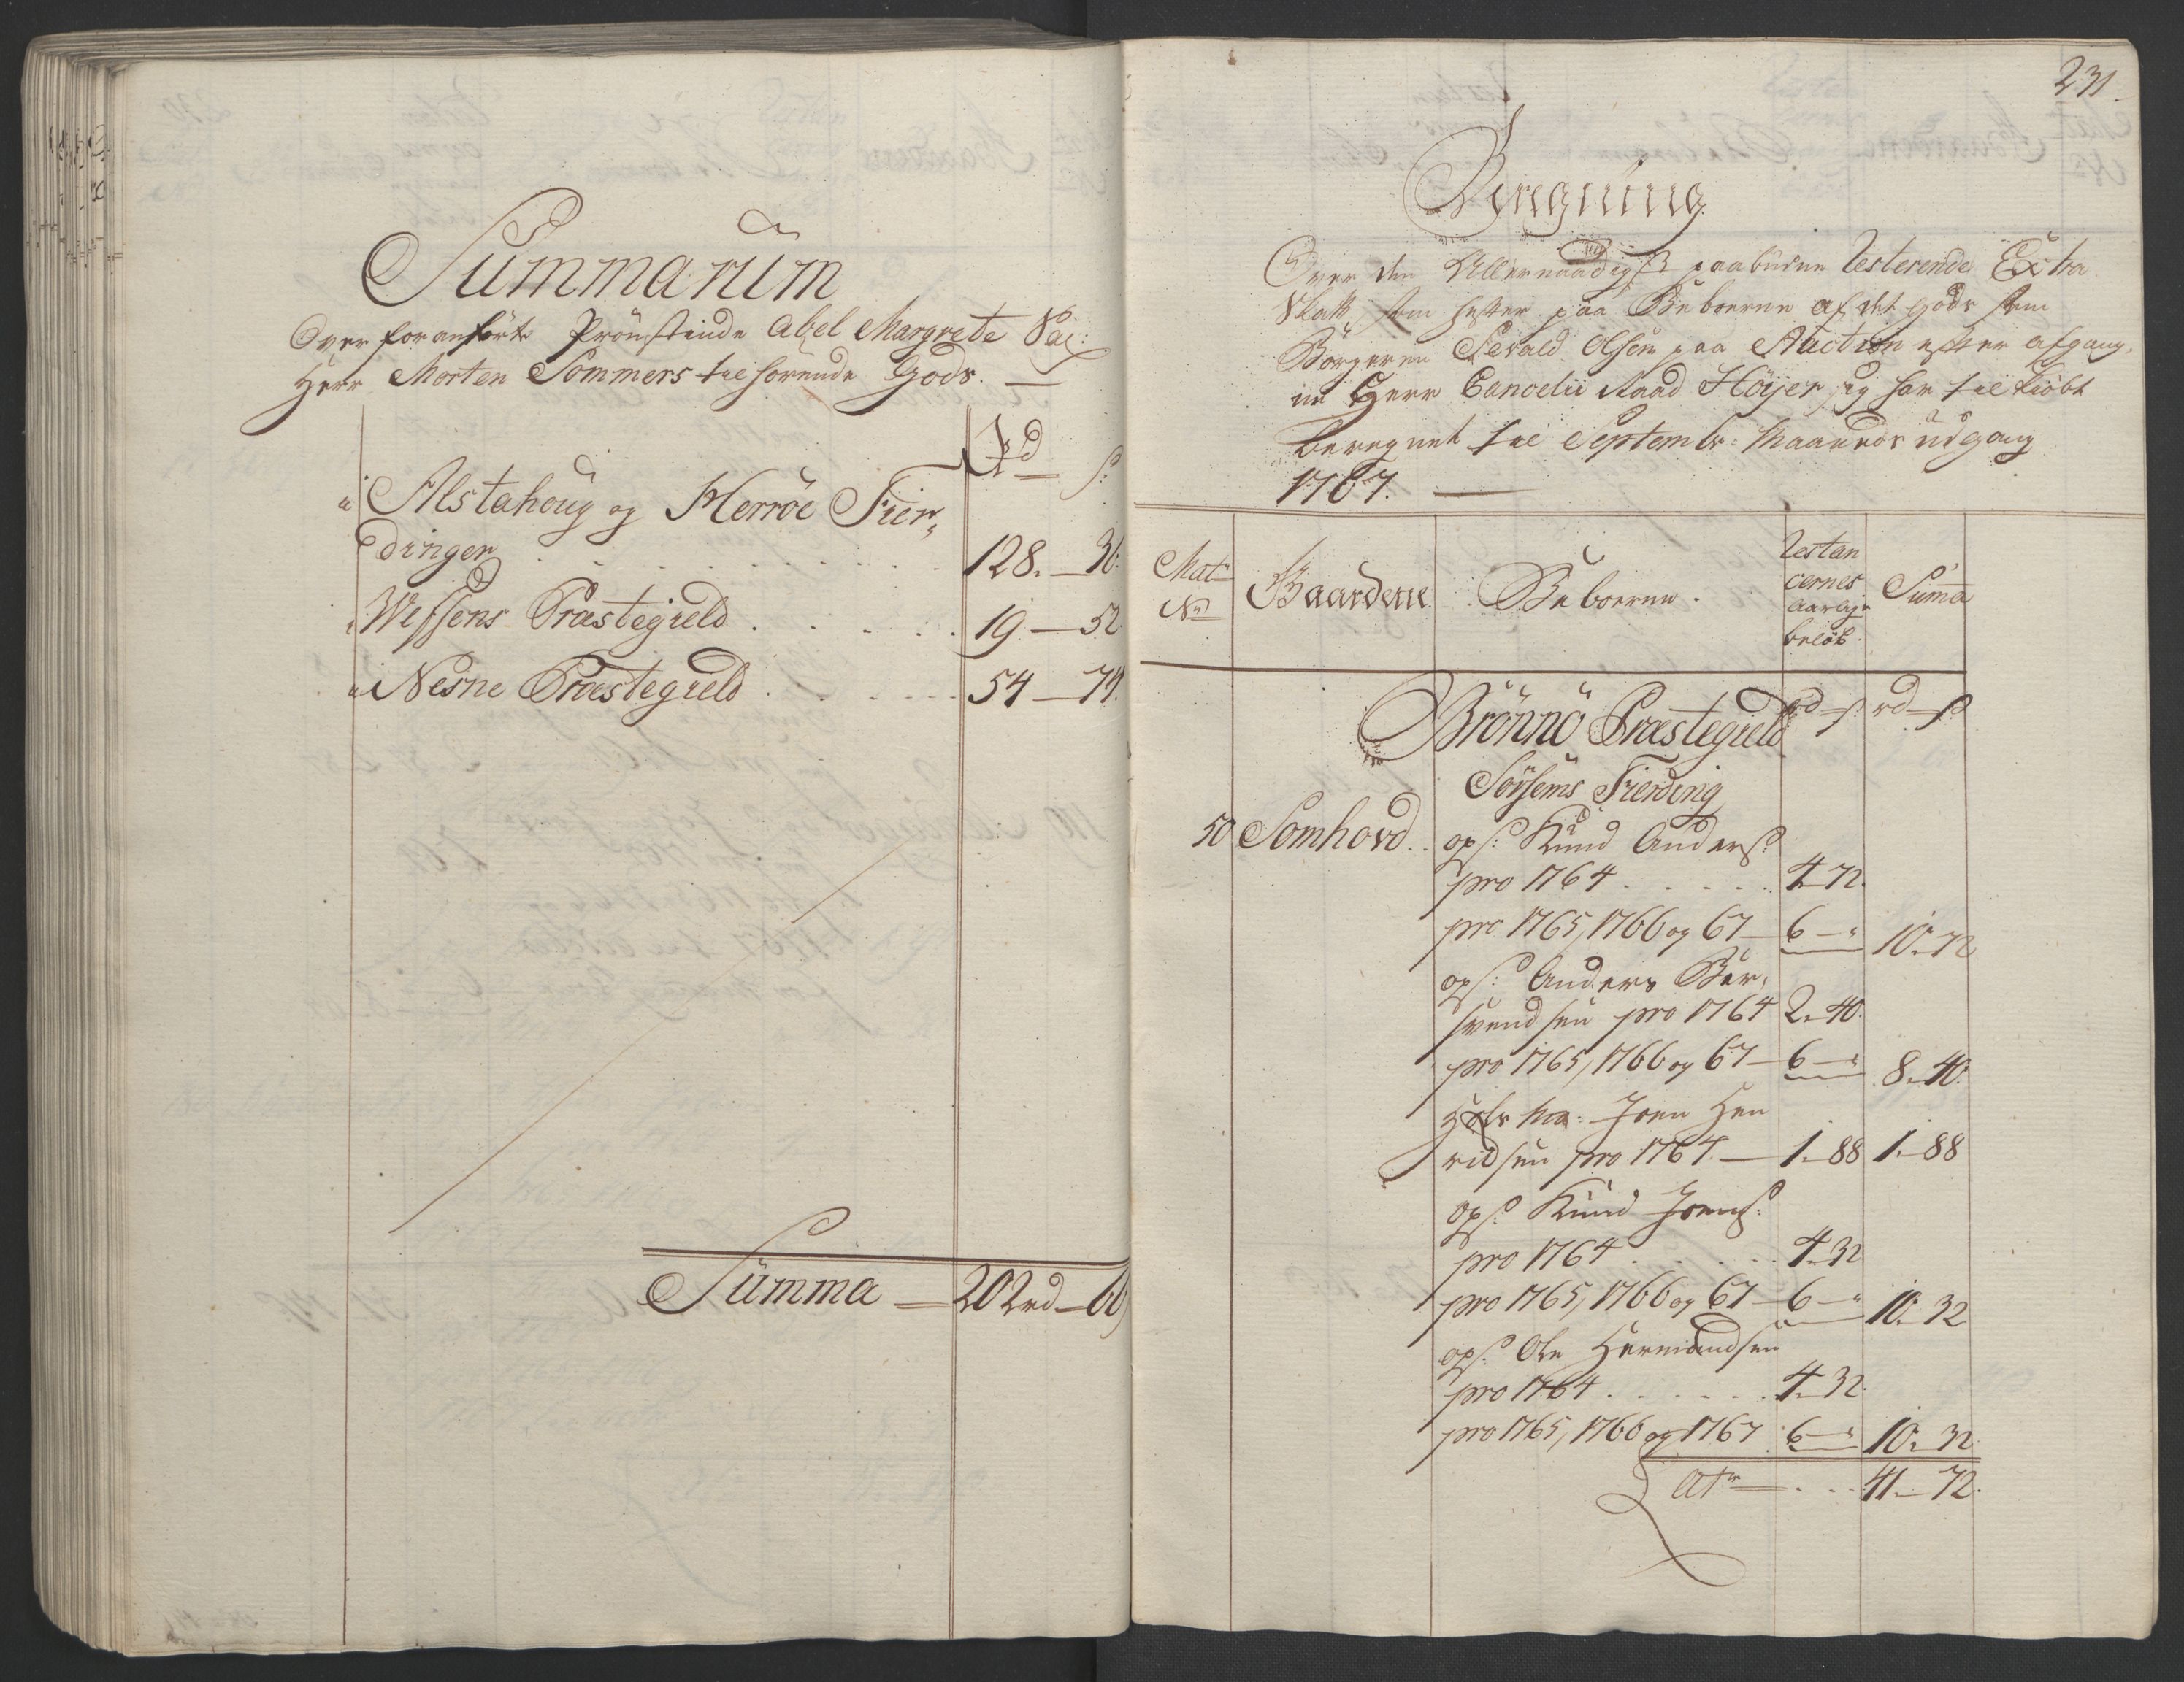 Summarum
Over foranførte Prønstinde Abel Margrete Sal:
Herr Morten Sommers tilhørende Gods. —
Rd ß:
a Alstahoug og Herröe Fier,
dinger . . . 128. — 36:
a Wefsens Præstegield . . . 19 — 52
a Nesne Præstegield . . . 54 — 74.
Summa — 202rd — 66
231.
Beregning
Over den Allernaadigst paabudne Resterende Extra
Skatt, som hefter paa Beboerne af det Gods som
Borgeren Sevald Olsen paa Auction efter afgang,
ne Herr Cancelii Raad Höyer sig har tilkiøbt
beregnet til Septembr: Maaneds udgang
1767. —
Matr No
Gaardene
Beboerne.
Restan
cernes
aarlige
beløb
Summa
Brönnö Præstegield rd — ß: rd — ß:
Sörsems Fierding
50 Somhovd . . ops: Knud Anders:
pro 1764 . . . . . 4 — 72.
pro 1765, 1766 og 67 — 6 — " 10 — 72
ops: Anders Ber,
svendsen pro 1764 2 — 40.
pro 1765, 1766 og 67 — 6 — " 8 — 40.
Joen Hen
richsen pro 1764. — 1 — 88 1 — 88
ops: Knud Joens:
pro 1764 . . . . . 4 — 32
pro 1765, 1766 og 67 — 6 — " 10 — 32
ops: Ole Hermandsen
pro 1764 . . . . . . 4 — 32.
pro 1765, 1766 og 1767 6 — " 10 — 32
Atr — . . . 41 — 72.